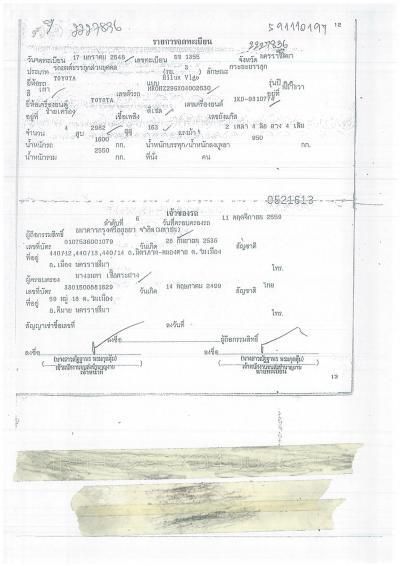 2227836
591110197 12
2227836
รายการจดทะเบียน
วันจดทะเบียน 17 มกราคม 2548 เลขทะเบียน 1355 จังหวัด นครราชสีมา
ประเภท รถยนต์บรรทุกส่วนบุคคล (รย. 3 ลักษณะ กระบะบรรทุก
ยี่ห้อรถ TOYOTA แบบ Hilux Vigo รุ่นปี
สี เทา เลขตัวรถ อยู่ที่
ยี่ห้อเครื่องยนต์ TOYOTA เลขเครื่องยนต์ 1KD-9310774
อยู่ที่ ขวาเครื่อง เชื้อเพลิง ดีเซล เลขถังแก๊ส
จำนวน 4 สูบ 2982 ซีซี 163 แรงม้า 2 เพลา 4 ล้อ ยาง 4 เส้น
น้ำหนักรถ 1600 กก. น้ำหนักบรรทุก/น้ำหนักลงเพลา 950 กก.
น้ำหนักรวม 2550 กก. ที่นั่ง คน
0521513
เจ้าของรถ
ลำดับที่ 6 วันที่ครอบครองรถ 11 พฤศจิกายน 2559
ผู้ถือกรรมสิทธิ์ ธนาคารกรุงศรีอยุธยา จำกัด (มหาชน)
เลขที่บัตร 0107536001079 วันเกิด 28 กันยายน 2536 สัญชาติ
ที่อยู่ 440/12,440/13,440/14 ถ.มิตรภาพ-หนองคาย ต.ในเมือง
อ.เมือง นครราชสีมา โทร.
ผู้ครอบครอง
เลขที่บัตร 3301500881529 วันเกิด 14 พฤษภาคม 2499 สัญชาติ ไทย
ที่อยู่ 59 หมู่ 18 ต.ในเมือง
อ.พิมาย นครราชสีมา โทร.
สัญญาเช่าซื้อเลขที่ ลงวันที่
ลงชื่อ ผู้ถือกรรมสิทธิ์
ลงชื่อ ลงชื่อ
13